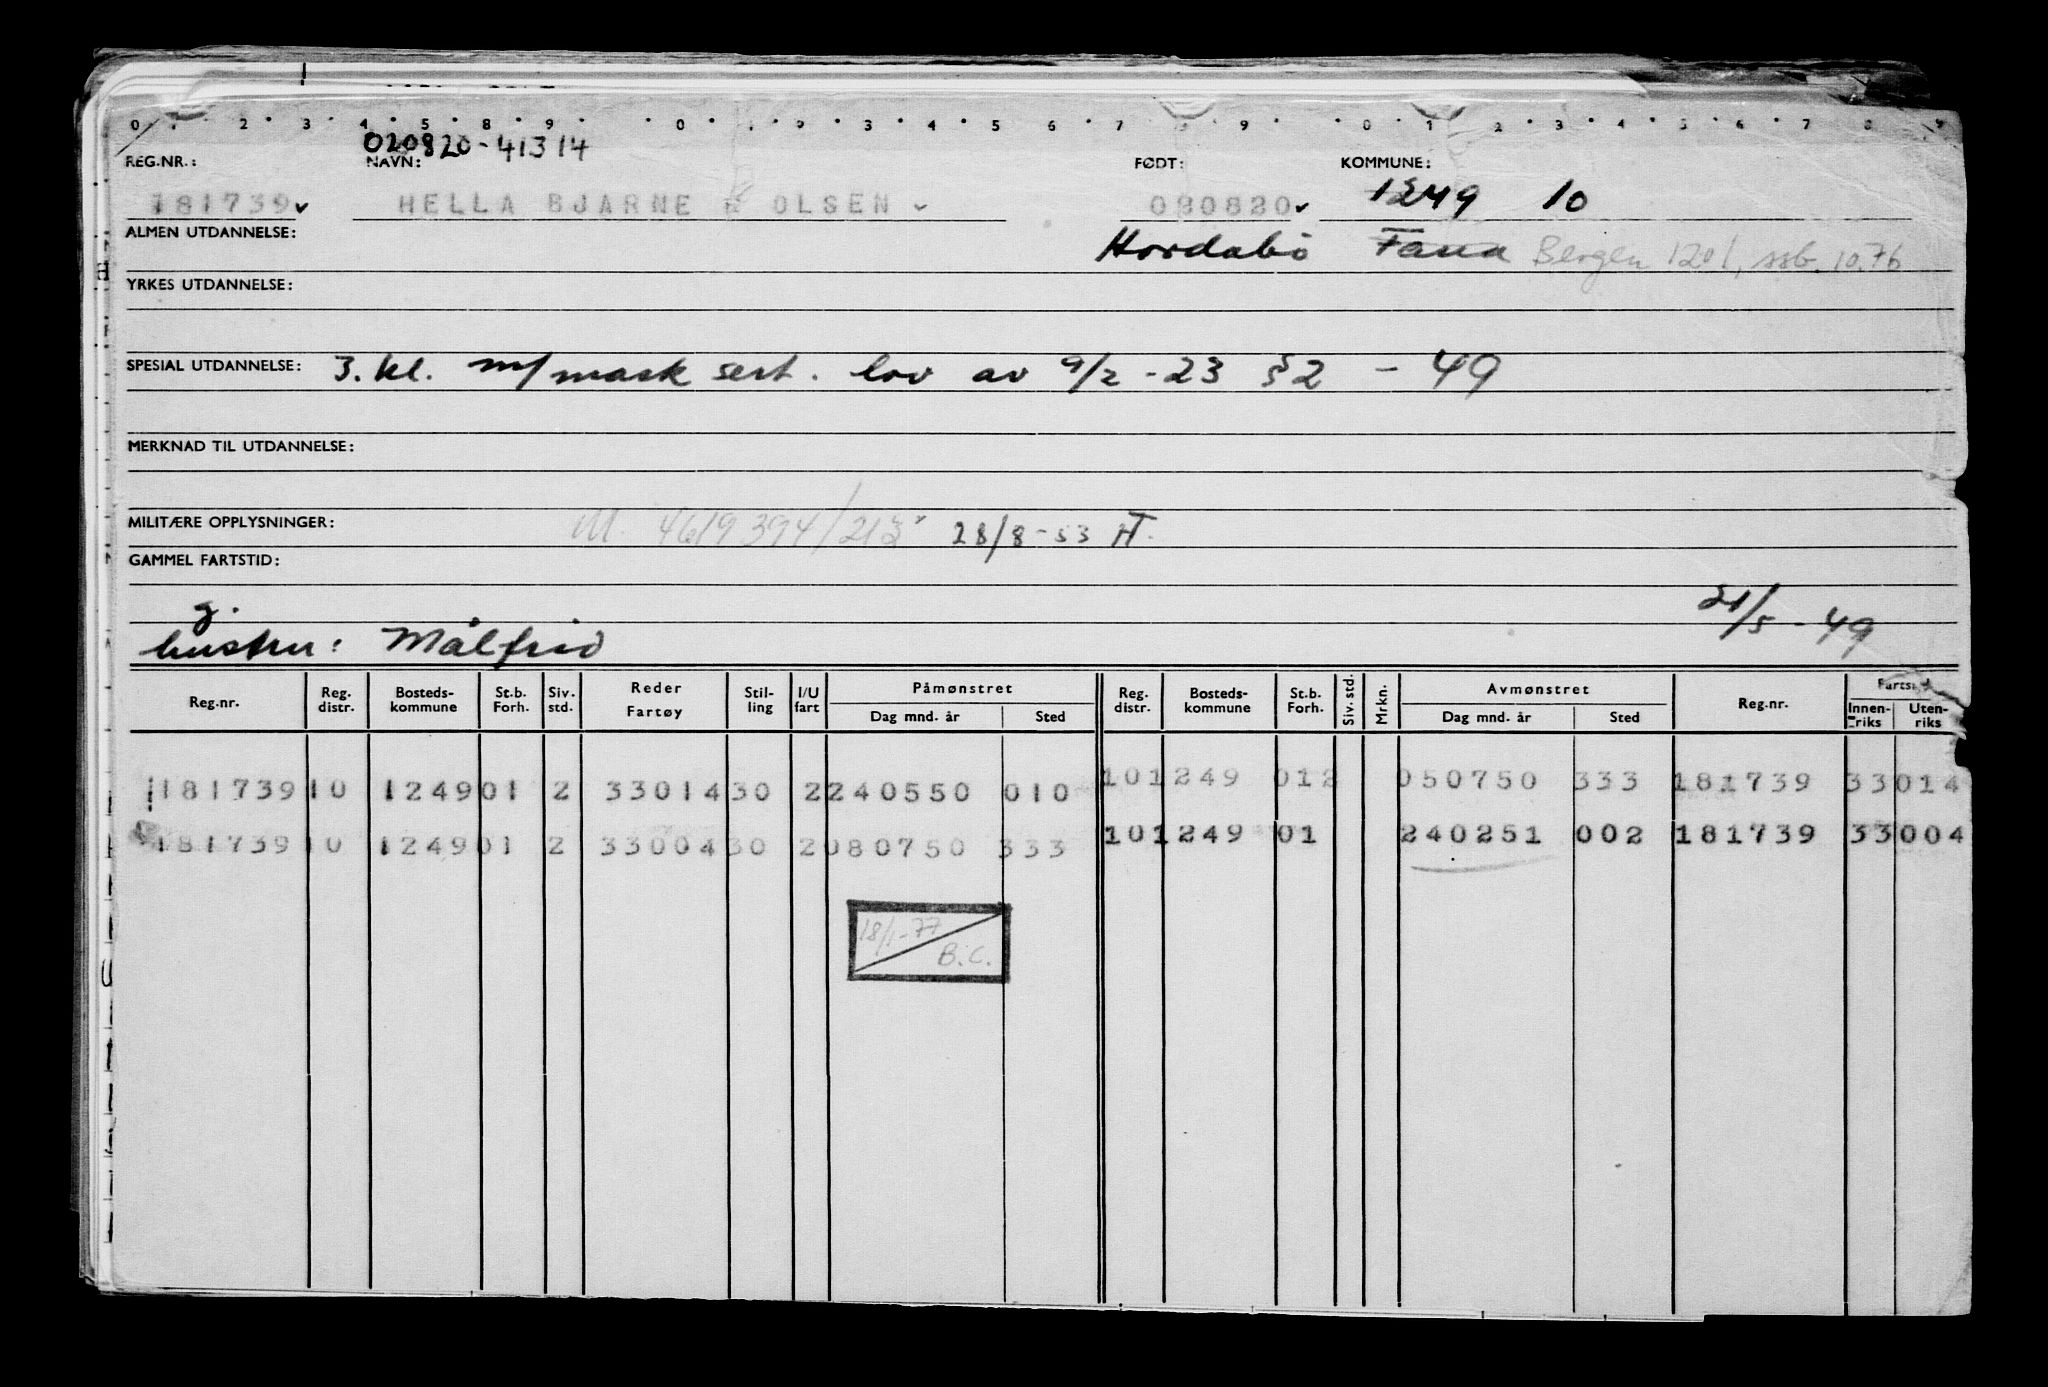 0 1 2 3 4 5 8 9 0 1 2 3 4 5 6 7 8 9 0 1 2 3 4 5 6 7 8 9
020820-41314
REG.NR.: NAVN: FØDT: KOMMUNE:
181739 HELLA BJARNE R OLSEN 020820 1249 10
ALMEN UTDANNELSE: Hordabø Fana Bergen 1201, ssb. 10.76
YRKES UTDANNELSE:
SPESIAL UTDANNELSE: 3. kl. m/mask sert. lov av 9/2-23 §2 - 49
MERKNAD TIL UTDANNELSE:
MILITÆRE OPPLYSNINGER: M. 4619394/213 28/8-53 H.
GAMMEL FARTSTID:
g. 21/5-49
hustru: Målfrid
Reg.nr. Reg. distr. Bosteds-kommune St.b. Forh. Siv. std. Reder Fartøy Stil-ling I/U fart Påmønstret Dag mnd. år Sted Reg. distr. Bosteds-kommune St.b. Forh. Siv. std. Mrkn. Avmønstret Dag mnd. år Sted Reg.nr. Fartstid Innen-riks Uten-riks
181739 10 1249 01 2 33014 30 2 240550 010 10 1249 012 050750 333 181739 33014
181739 10 1249 01 2 33004 30 2 080750 333 10 1249 01 240251 002 181739 33004
18/1-77
B.C.